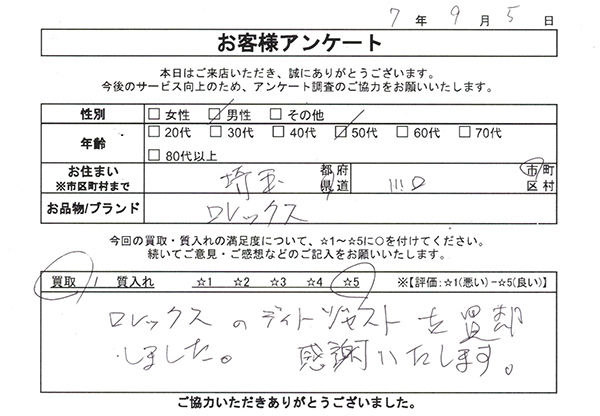 7年9月5日
お客様アンケート
本日はご来店いただき、誠にありがとうございます。
今後のサービス向上のため、アンケート調査のご協力をお願いいたします。
性別 □女性 □男性 □その他
年齢 □20代 □30代 □40代 □50代 □60代 □70代
□80代以上
お住まい 埼玉 都府県道 川口 市町区村
※市区町村まで
お品物/ブランド ロレックス
今回の買取・質入れの満足度について、☆1～☆5に○を付けてください。
続いてご意見・ご感想などのご記入をお願いいたします。
買取 / 質入れ ☆1 ☆2 ☆3 ☆4 ☆5 ※【評価:☆1(悪い)-☆5(良い)】
ロレックスのデイトジャストを買却
しました。 感謝いたします。
ご協力いただきありがとうございました。